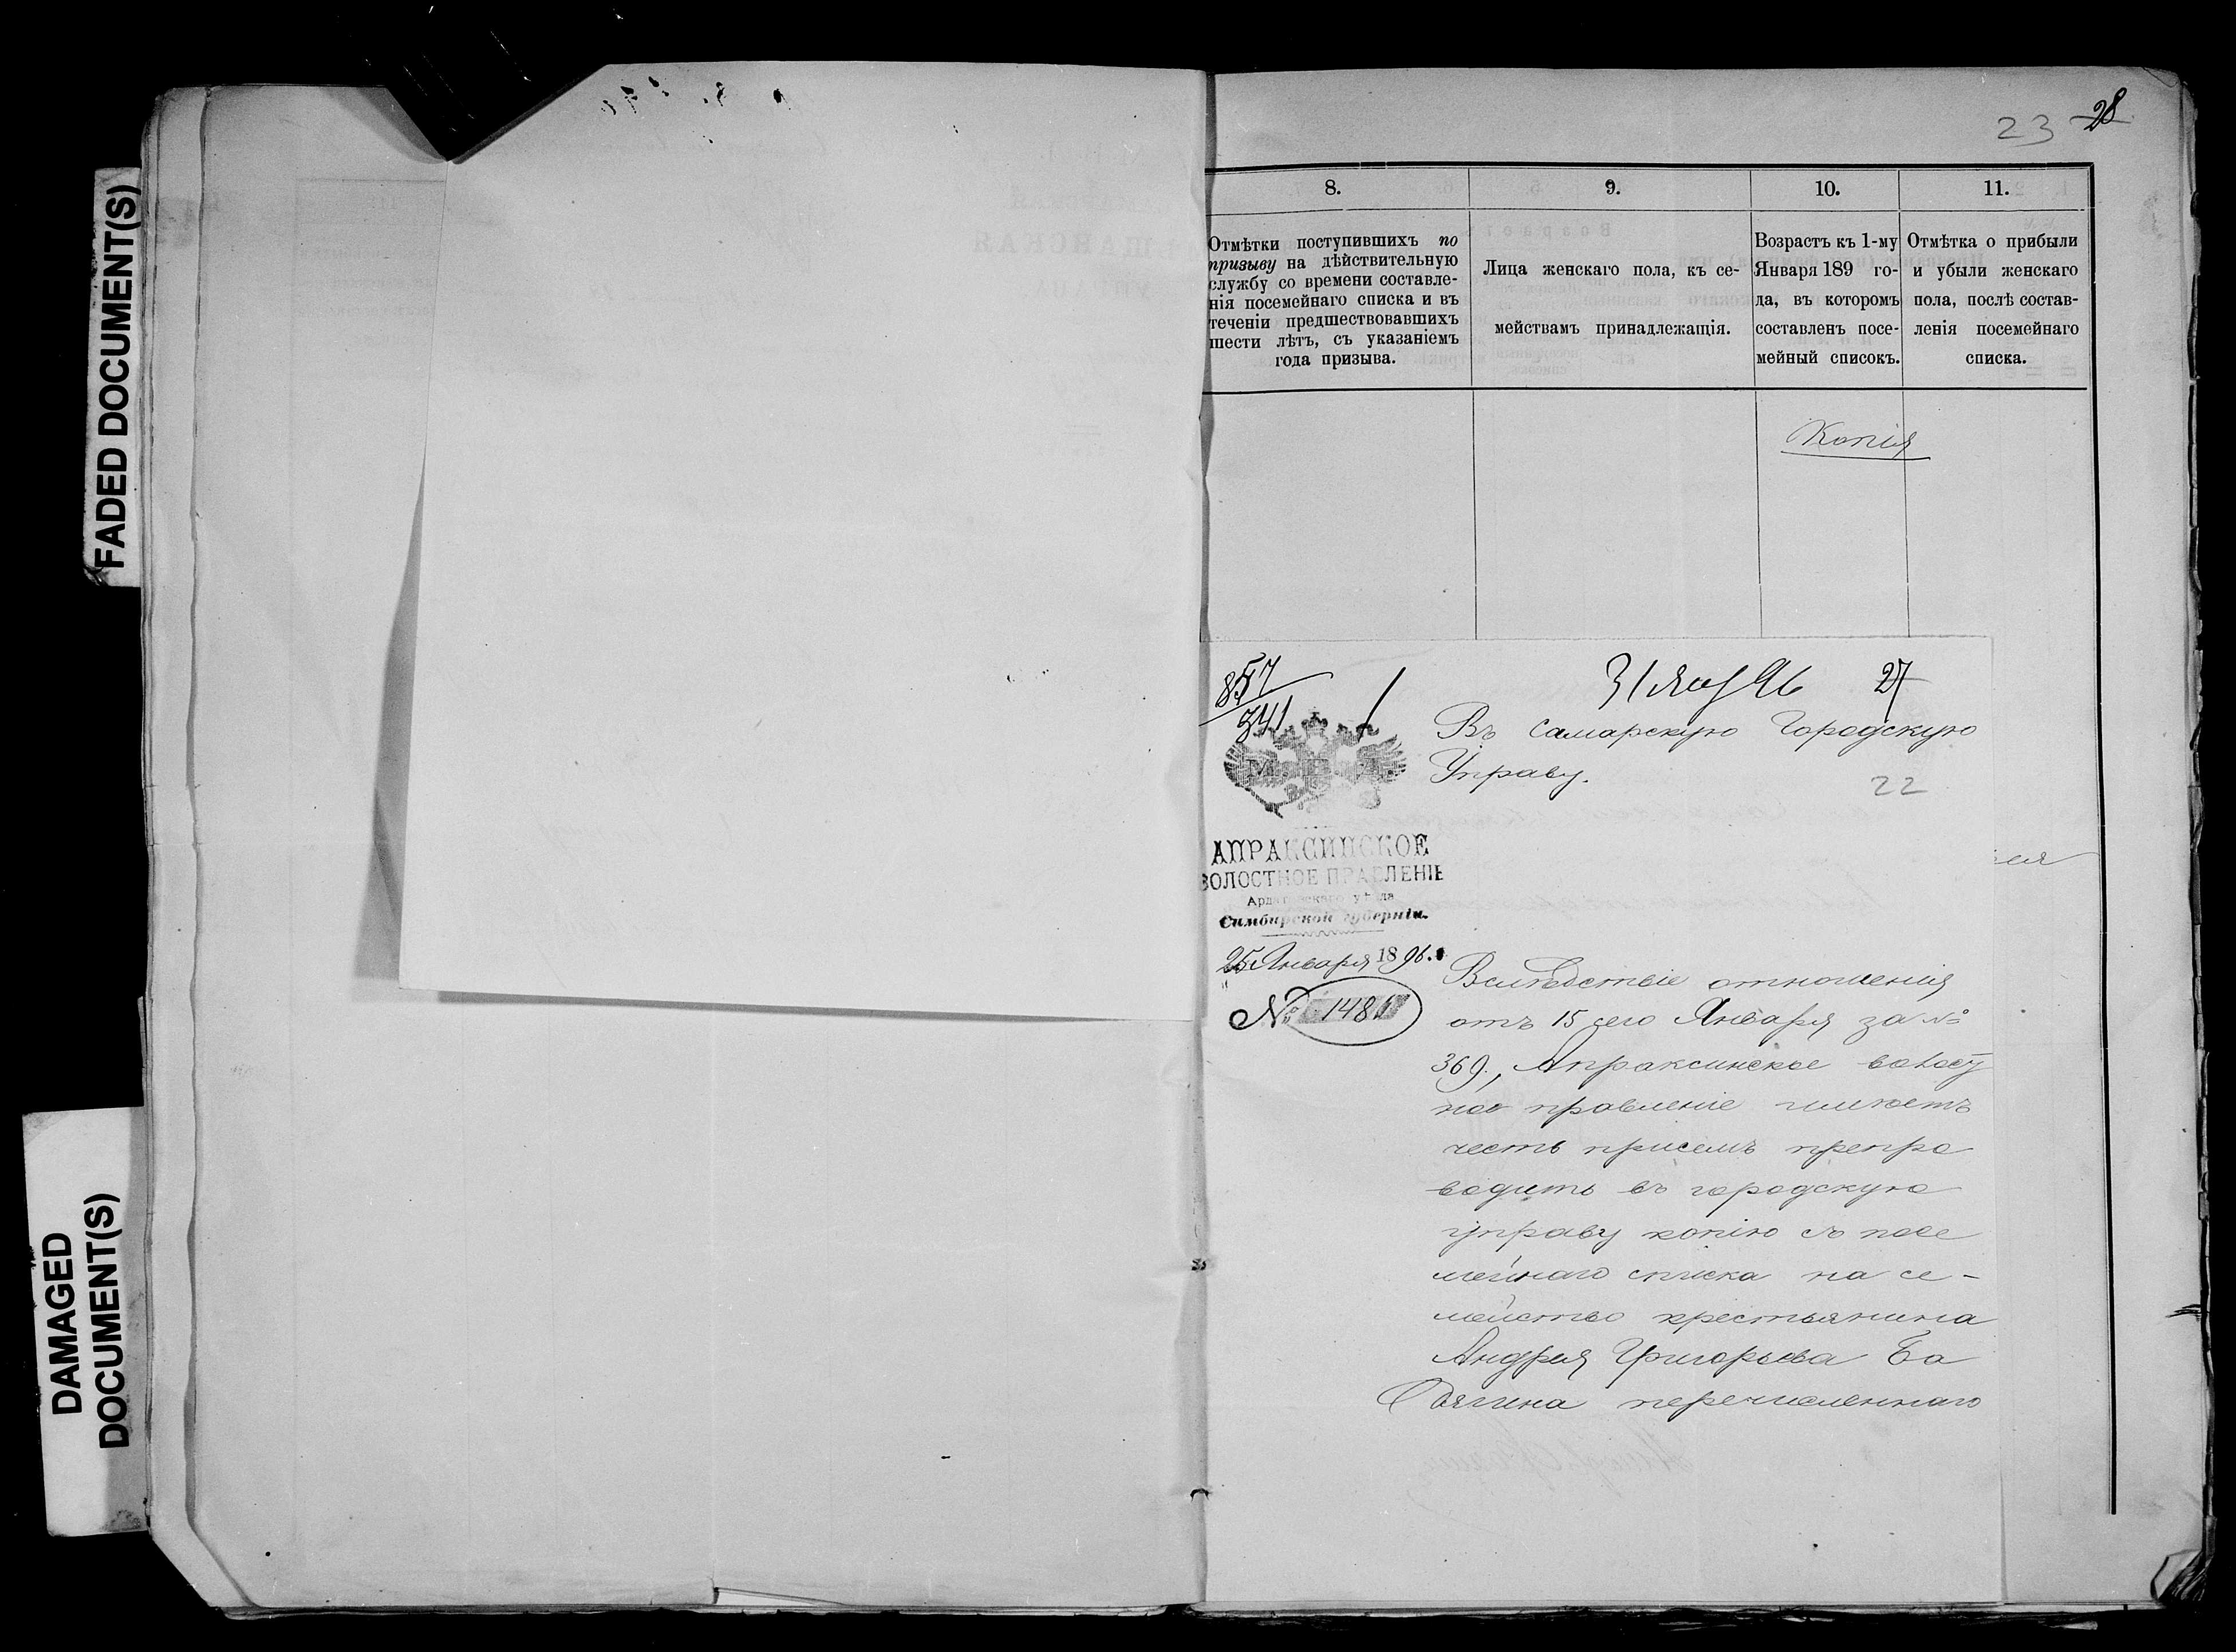 FADED DOCUMENT(S)
DAMAGED
DOCUMENT(S)
23 28
8.
Отмѣтки поступившихъ по
призыву на дѣйствительную
службу со времени составле-
нія посемейнаго списка и въ
теченіи предшествовавшихъ
шести лѣтъ, съ указаніемъ
года призыва.
9.
Лица женскаго пола, къ се-
мействамъ принадлежащія.
10.
Возрастъ къ 1-му
Января 189 го-
да, въ которомъ
составленъ посе-
мейный списокъ.
11.
Отмѣтка о прибыли
и убыли женскаго
пола, послѣ состав-
ленія посемейнаго
списка.
Копія
857
341
31 янв 96 27
Въ Самарскую Городскую
Управу.
22
М. В. Д.
АПРАКСИНСКОЕ
ВОЛОСТНОЕ ПРАВЛЕНІЕ
Ардатовскаго уѣзда
Симбирской губерніи.
25 Января 1896.
№ 148
Вслѣдствіе отношенія
отъ 15 сего Января за №
369, Апраксинское волост
ное правленіе имѣетъ
честь присемъ препро
водить въ городскую
управу копію съ посе
мейнаго списка на се-
мейство крестьянина
Андрея Григорьева Ба
дягина перечисленнаго